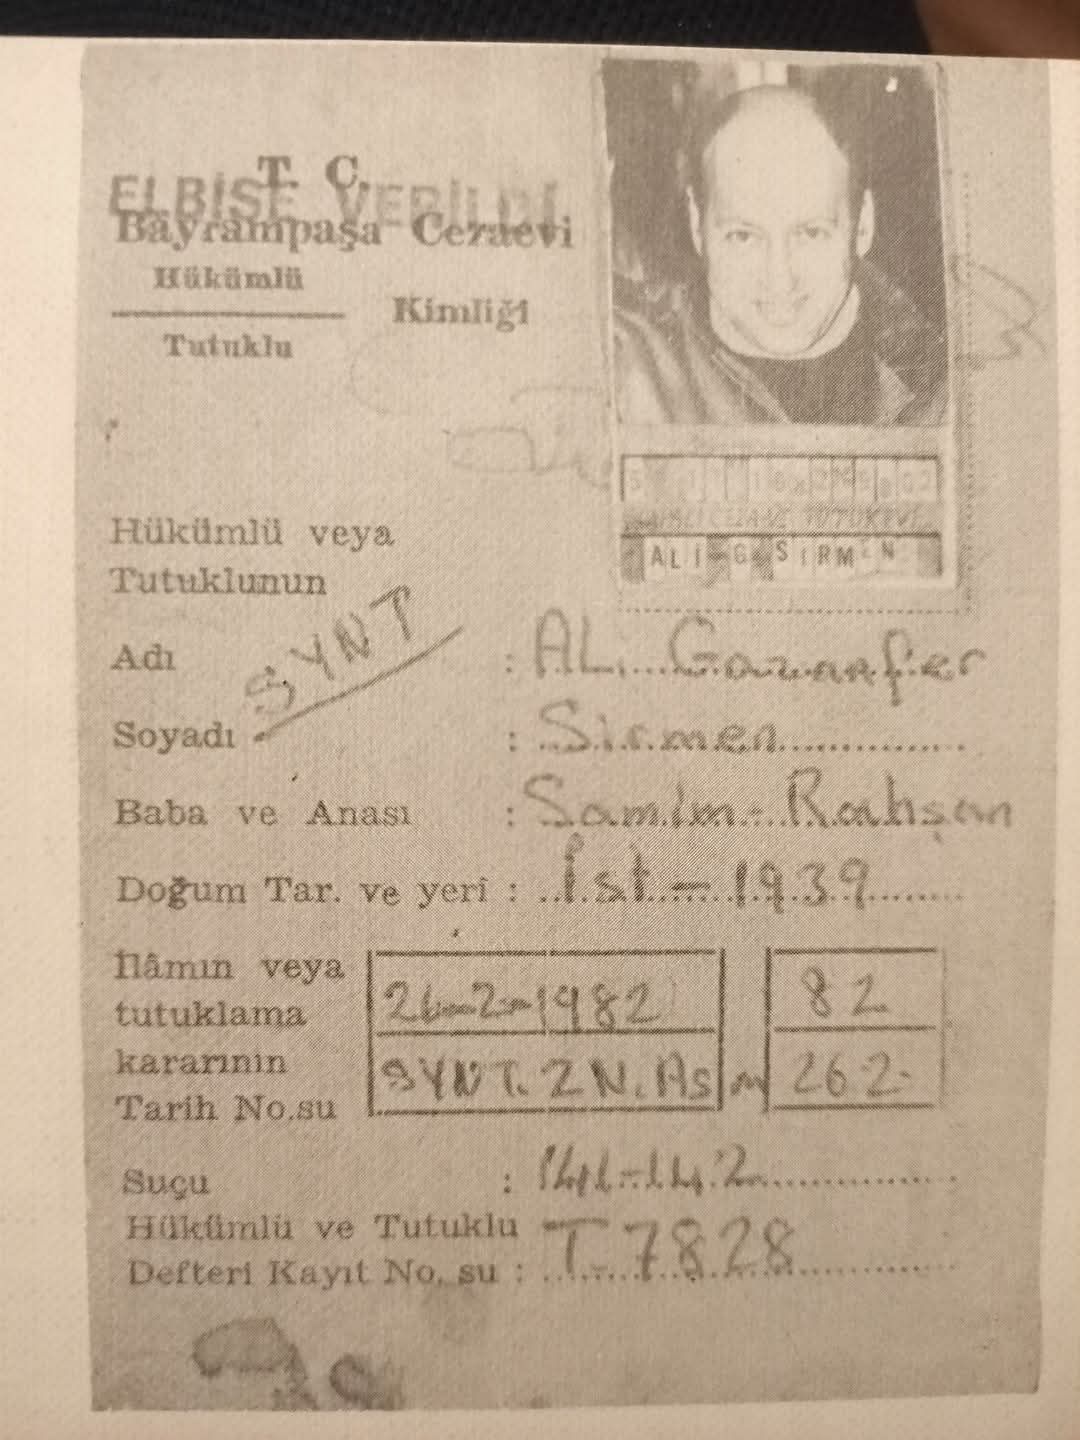 T. C.
ELBİSE VERİLDİ
Bayrampaşa Cezaevi
Hükümlü
Kimliği
Tutuklu
ALİ-G SİRMEN
Hükümlü veya
Tutuklunun
SYNT
Adı : ALi Gazanfer
Soyadı : Sirmen
Baba ve Anası : Samim - Rahşan
Doğum Tar. ve yeri : İst - 1939
İlâmın veya
tutuklama
kararının
Tarih No.su
26-2-1982 82
SYNT. 2 N. As 26.2.
Suçu : 141-142
Hükümlü ve Tutuklu
Defteri Kayıt No. su : T-7828